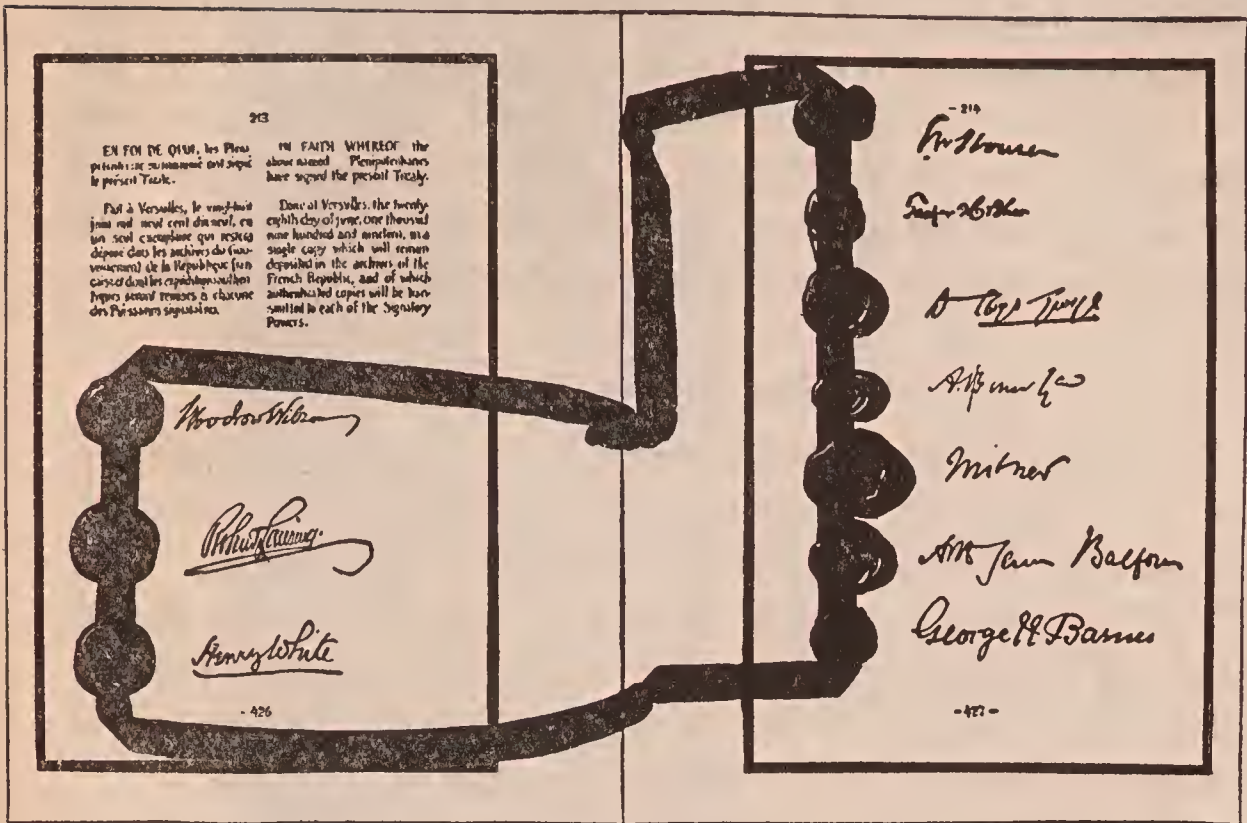 213
EN FOI DE QUOI, les Pléni-
potentiaires susnommés ont signé
le présent Traité.
Fait à Versailles, le vingt-huit
juin mil neuf cent dix-neuf, en
un seul exemplaire qui restera
déposé dans les archives du Gou-
vernement de la République fran-
çaise et dont les expéditions authen-
tiques seront remises à chacune
des Puissances signataires.
IN FAITH WHEREOF the
above-named Plenipotentiaries
have signed the present Treaty.
Done at Versailles, the twenty-
eighth day of June, one thousand
nine hundred and nineteen, in a
single copy which will remain
deposited in the archives of the
French Republic, and of which
authenticated copies will be tran-
smitted to each of the Signatory
Powers.
Woodrow Wilson
Robert Lansing.
Henry White
- 426
- 214
A. Bonar Law
Milner
Balfour
George N Barnes
- 427 -